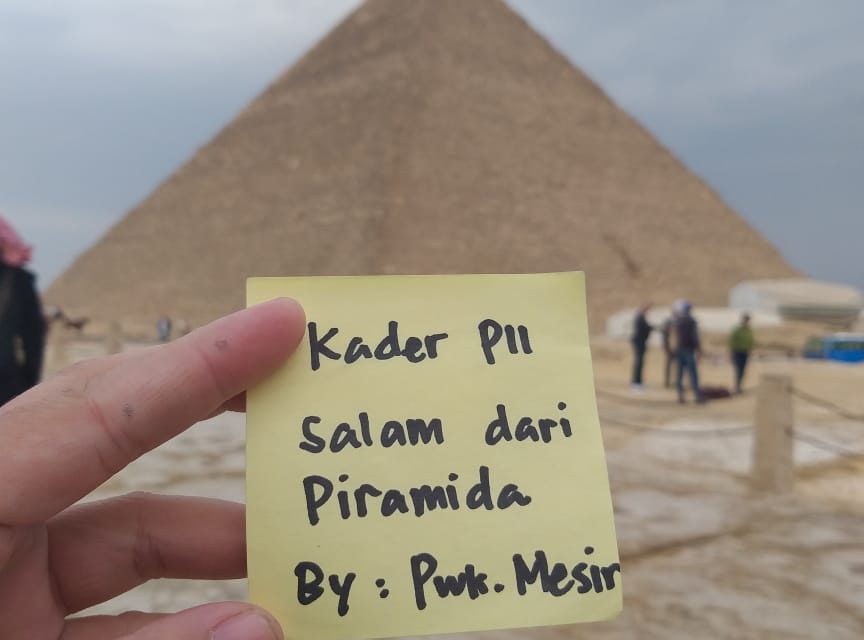 Kader PII
Salam dari
Piramida
By : Pwk. Mesir